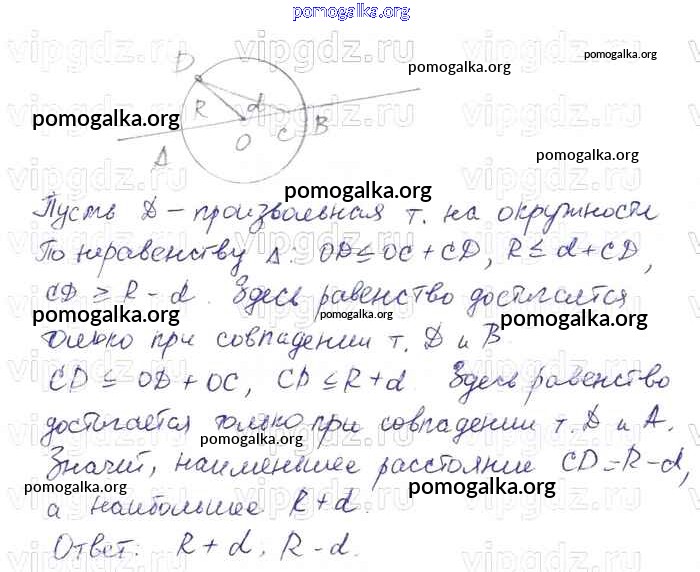 pomogalka.org
vipgdz.ru vipgdz.ru vipgdz.ru
pomogalka.org
pomogalka.org
D
R d
pomogalka.org
O C B
A
pomogalka.org
pomogalka.org
Пусть D – произвольная т. на окружности
По неравенству Δ. OD ≤ OC + CD, R ≤ d + CD,
CD ≥ R – d. Здесь равенство достигается
pomogalka.org pomogalka.org pomogalka.org
только при совпадении т. D и B
CD ≤ OD + OC, CD ≤ R + d Здесь равенство
достигается только при совпадении т. D и A.
pomogalka.org
Значит, наименьшее расстояние CD = R – d,
pomogalka.org pomogalka.org
а наибольшее R + d.
Ответ: R + d, R – d.
pomogalka.org